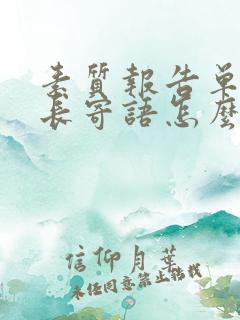 素質報告單
長寄語怎麼
信仰月葉
未经同意禁止转载